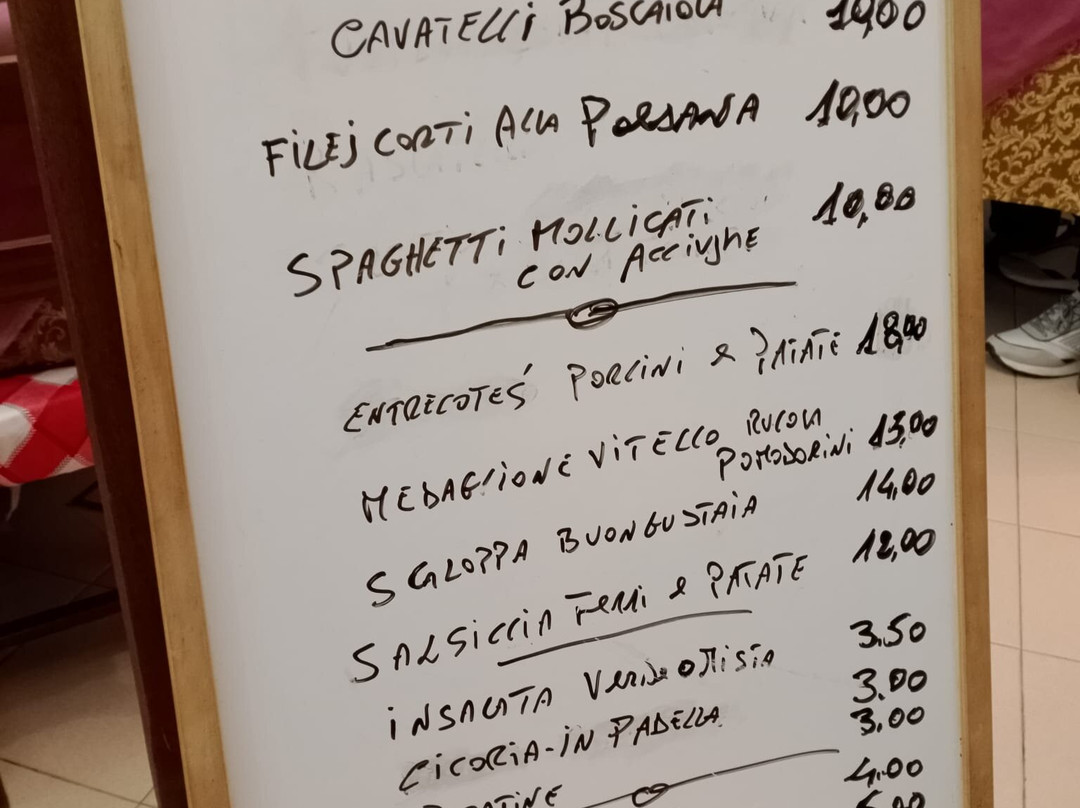 CAVATELLI BOSCAIOLA 10,00
FILEJ CORTI ALLA PORSANA 10,00
SPAGHETTI MOLLICATI 10,00
CON ACCIUGHE
ENTRECOTES PORCINI & PATATE 18,00
MEDAGLIONE VITELLO RUCOLA
POMODORINI 15,00
SCALOPPA BUONGUSTAIA 14,00
SALSICCIA FERRI & PATATE 12,00
INSALATA VERDE O MISTA 3.50
CICORIA-IN PADELLA 3.00
3.00
4.00